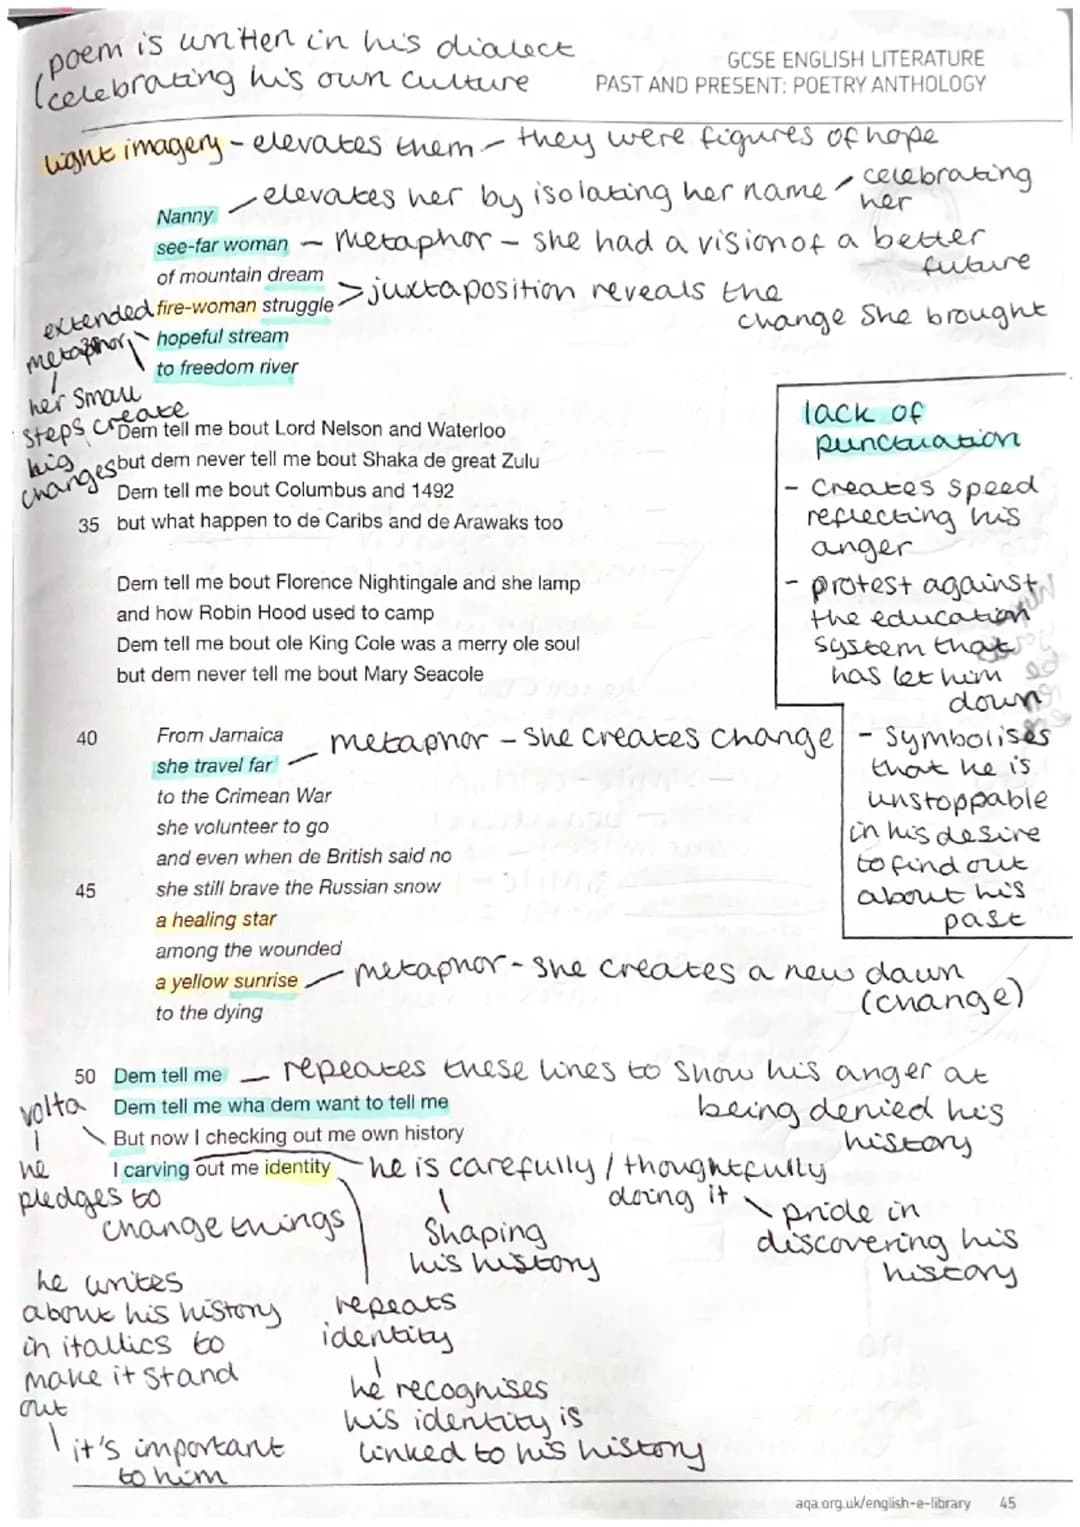 poem is written in his dialect
(celebrating his own culture
GCSE ENGLISH LITERATURE
PAST AND PRESENT: POETRY ANTHOLOGY
light imagery - elevates them - they were figures of hope
Nanny - elevates her by isolating her name - celebrating her
see-far woman - metaphor - she had a vision of a better future
of mountain dream
fire-woman struggle > juxtaposition reveals the change she brought
hopeful stream
to freedom river
extended metaphor
her small
steps create
big
changes
Dem tell me bout Lord Nelson and Waterloo
but dem never tell me bout Shaka de great Zulu
Dem tell me bout Columbus and 1492
35 but what happen to de Caribs and de Arawaks too
lack of
punctuation
- Creates speed
reflecting his
anger
- protest against
the education
system that
has let him
down
- Symbolises
that he is
unstoppable
in his desire
to find out
about his
past
Dem tell me bout Florence Nightingale and she lamp
and how Robin Hood used to camp
Dem tell me bout ole King Cole was a merry ole soul
but dem never tell me bout Mary Seacole
40 From Jamaica
she travel far - metaphor - she creates change
to the Crimean War
she volunteer to go
and even when de British said no
45 she still brave the Russian snow
a healing star
among the wounded
a yellow sunrise - metaphor - she creates a new dawn
(change)
to the dying
50 Dem tell me - repeates these lines to show his anger at
being denied his
history
Dem tell me wha dem want to tell me
But now I checking out me own history
I carving out me identity
volta
he
pledges to
change things
he is carefully / thoughtfully
doing it
Shaping
his history
pride in
discovering his
history
he writes
about his history
in itallics to
make it stand
out
it's important
to him
repeats
identity
he recognises
his identity is
linked to his history
aqa.org.uk/english-e-library 45